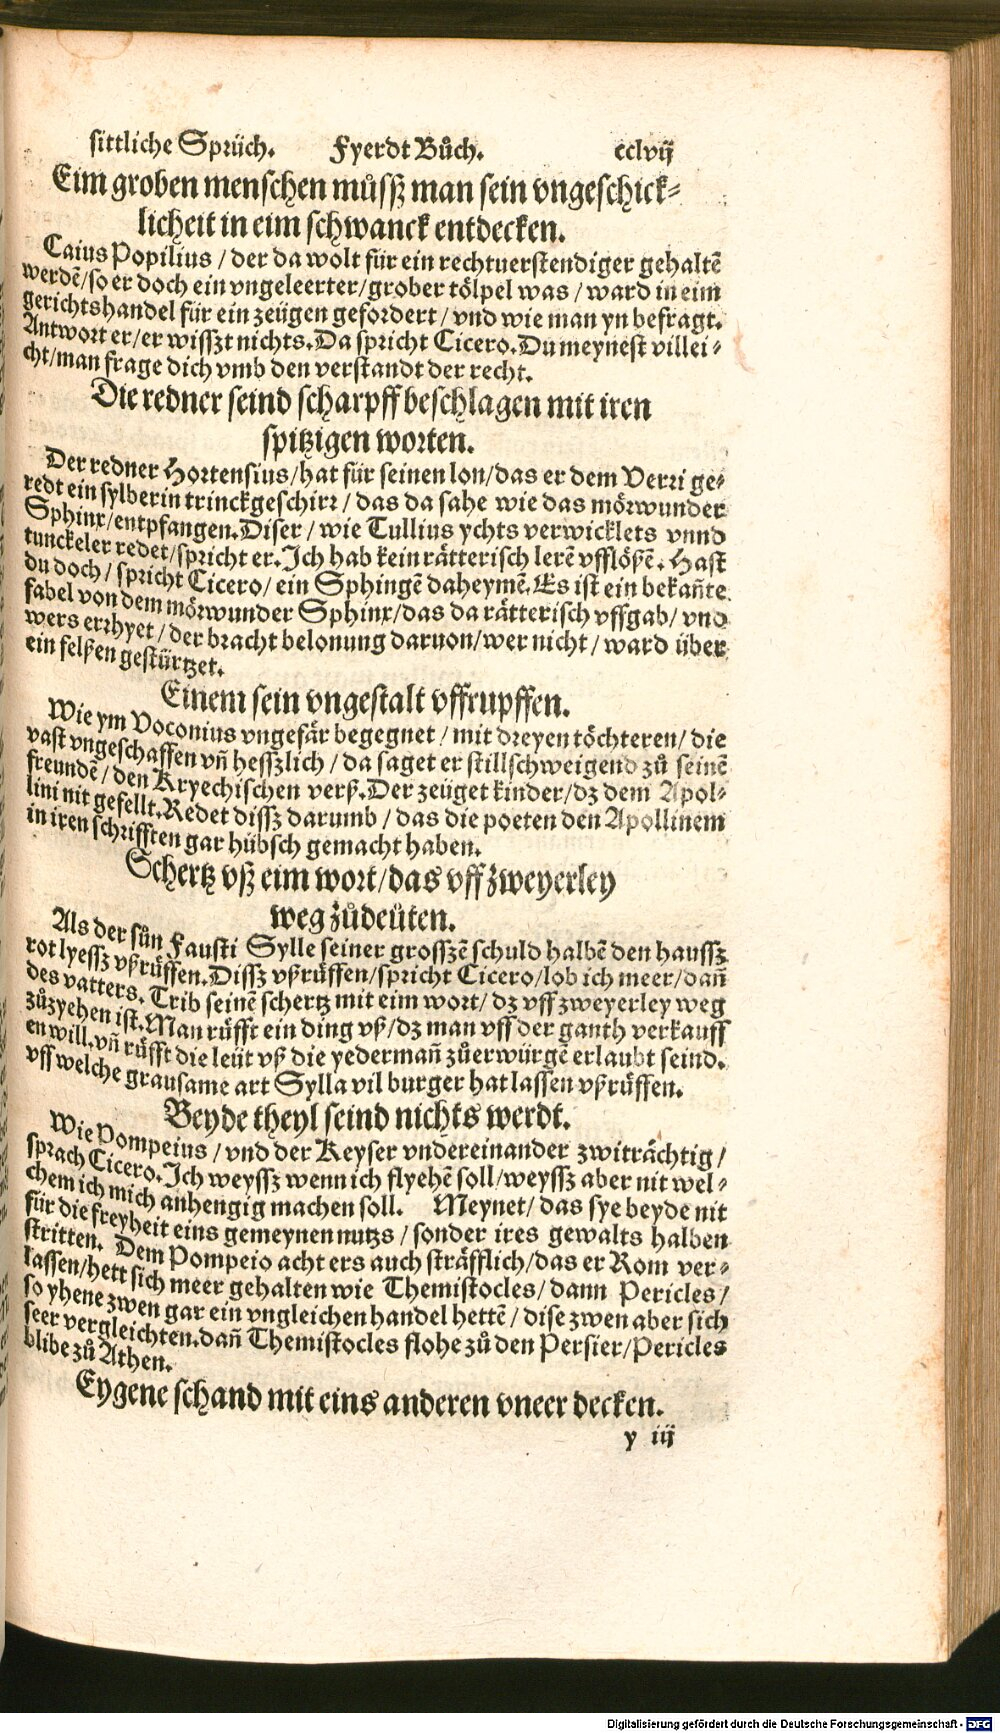 sittliche Sprüch. Fyerdt Bůch. cclvij
Eim groben menschen můssz man sein vngeschick-
licheit in eim schwanck entdecken.
Caius Popilius / der da wolt für ein rechtuerstendiger gehaltē
werdē/so er doch ein vngeleerter/grober tölpel was / ward in eim
gerichtshandel für ein zeügen gefordert / vnd wie man yn befragt.
Antwort er/er wisszt nichts. Da spricht Cicero. Du meynest villei-
cht/man frage dich vmb den verstandt der recht.
Die redner seind scharpff beschlagen mit iren
spitzigen worten.
Der redner Hortensius/hat für seinen lon/das er dem Verri ge-
redt ein sylberin trinckgeschirr / das da sahe wie das mörwunder
Sphinx/entpfangen. Diser / wie Tullius ychts verwicklets vnnd
tunckeler redet/spricht er. Ich hab kein rätterisch lerē vfflößē. Hast
du doch / spricht Cicero/ ein Sphingē daheymē. Es ist ein bekañte
fabel von dem mörwunder Sphinx/das da rätterisch vffgab/ vnd
wers errhyet / der bracht belonung daruon/wer nicht / ward über
ein felßen gestürtzet.
Einem sein vngestalt vffrupffen.
Wie ym Voconius vngefär begegnet / mit dreyen töchteren/ die
vast vngeschaffen vñ hesszlich / da saget er stillschweigend zů seinē
freundē / den Kryechischen verß. Der zeüget kinder/dz dem Apol-
lini nit gefellt. Redet dissz darumb / das die poeten den Apollinem
in iren schrifften gar hübsch gemacht haben.
Schertz vß eim wort/das vff zweyerley
weg zůdeüten.
Als der sůn Fausti Sylle seiner grosszē schuld halbē den haussz
rot lyessz vßrüffen. Dissz vßrüffen/spricht Cicero/lob ich meer/dañ
des vatters. Trib seinē schertz mit eim wort/ dz vff zweyerley weg
zůzyehen ist. Man rüfft ein ding vß/dz man vff der ganth verkauff
en will. vñ rüfft die leüt vß die yedermañ zůerwürgē erlaubt seind.
vff welche grausame art Sylla vil burger hat lassen vßrüffen.
Beyde theyl seind nichts werdt.
Wie Pompeius / vnd der Keyser vndereinander zwiträchtig /
sprach Cicero. Ich weyssz wenn ich flyehē soll/weyssz aber nit wel-
chem ich mich anhengig machen soll. Meynet/ das sye beyde nit
für die freyheit eins gemeynen nutzs / sonder ires gewalts halben
stritten. Dem Pompeio acht ers auch sträfflich/das er Rom ver-
lassen/hett sich meer gehalten wie Themistocles/ dann Pericles /
so yhene zwen gar ein vngleichen handel hettē / dise zwen aber sich
seer vergleichten. dañ Themistocles flohe zů den Persier/Pericles
blibe zů Athen.
Eygene schand mit eins anderen vneer decken.
y iij
Digitalisierung gefördert durch die Deutsche Forschungsgemeinschaft - DFG